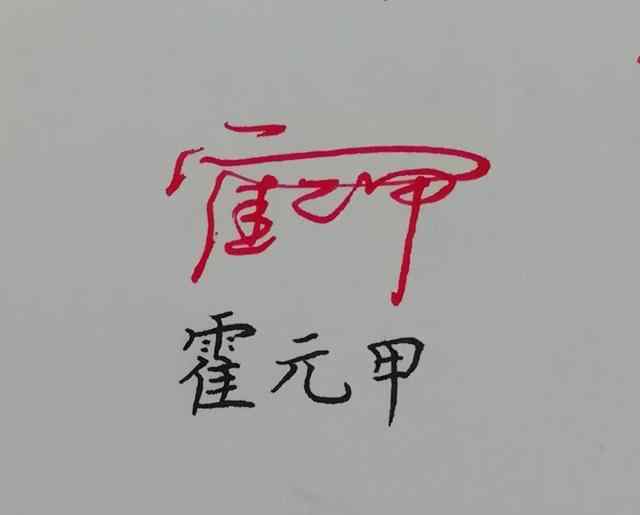 霍元甲
霍元甲